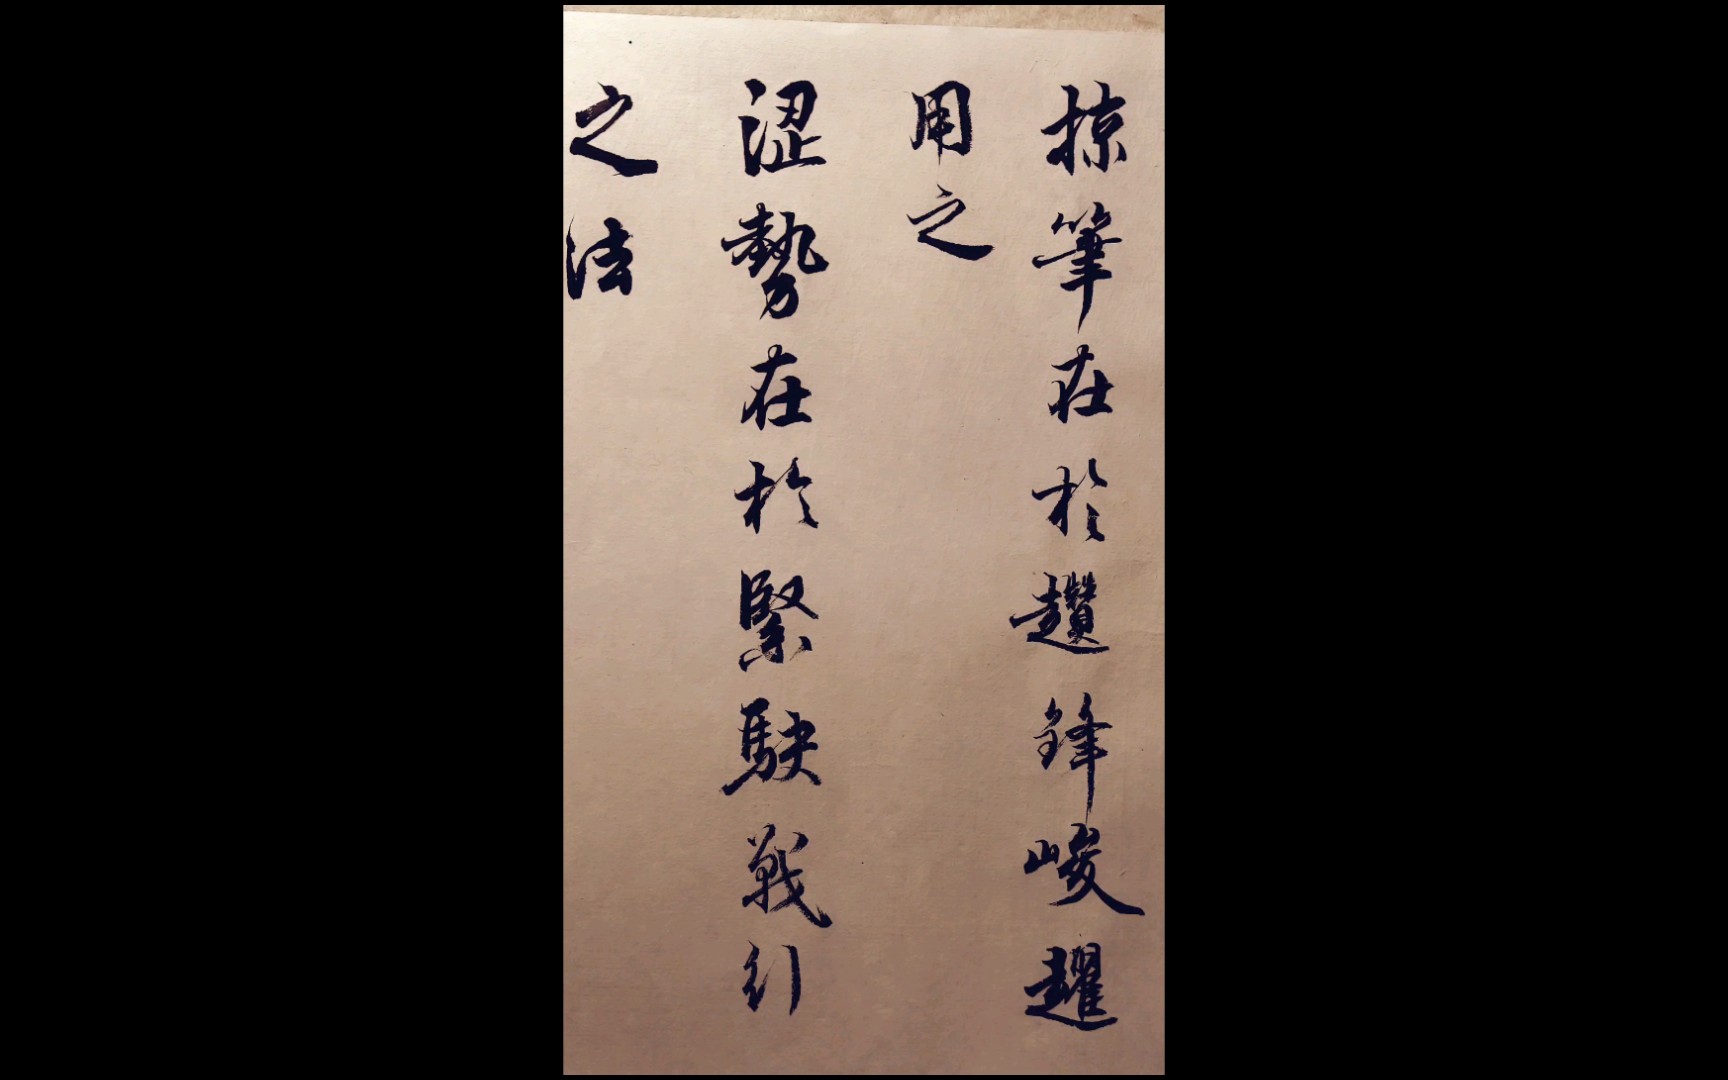 掠筆在於趲鋒峻趯
用之
澀勢在於緊駃戰行
之法